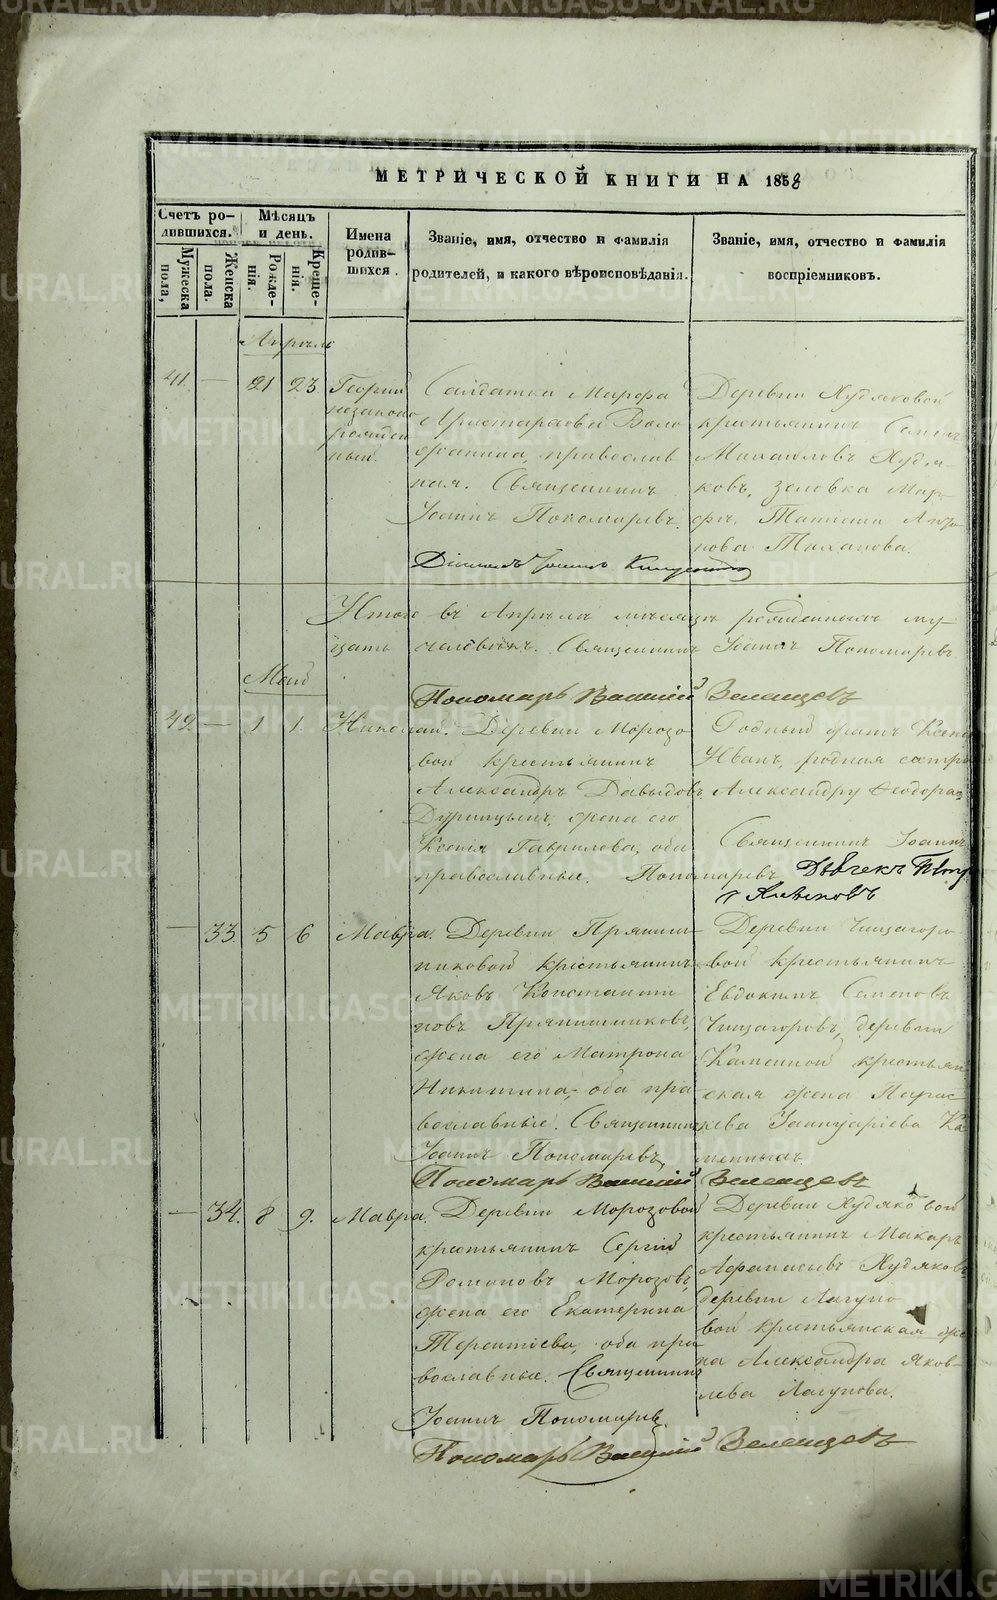 METRIKI.GASO-URAL.RU
МЕТРИЧЕСКОЙ КНИГИ НА 1858
Счетъ ро-
дившихся.
Мужеска
пола,
Женска
пола.
Мѣсяцъ
и день.
Рожде-
нія.
Креще-
нія.
Имена
родив-
шихся.
Званіе, имя, отчество и фамилія
родителей, и какого вѣроисповѣданія.
Званіе, имя, отчество и фамилія
воспріемниковъ.
Апрѣль
41. — 21 23 Георгій
незаконо
рожден
ный.
Салдатка Марфа
православ
ная. Священникъ
Іоаннъ Пономаревъ.
Деревни Худяковой
крестьянинъ Семенъ
Михайловъ Худя-
ковъ, золовка Мар-
фы,
Итого въ Апрѣлѣ мѣсяцѣ рожденныхъ
человѣкъ. Священникъ Іоаннъ Пономаревъ
Май
Пономарь Василій Зеленцовъ
42 — 1 1. Николай.
Деревни Морозо
вой крестьянинъ
Александръ Давыдовъ
жена его
Ксенія Гаврилова, оба
православные.
Родный братъ
Иванъ, родная сестра
Священникъ Іоаннъ
Пономаревъ
— 33. 5 6 Мавра.
Деревни Пряниш
никовой крестьянинъ
Яковъ Константи
новъ Прянишниковъ,
жена его Матрона
Никитина, оба пра
вославные. Священникъ
Іоаннъ Пономаревъ,
Деревни Чищагоро
вой крестьянинъ
Евдокимъ Семеновъ
Чищагоровъ, деревни
Каменной крестьян
ская жена Парас
кева Іаннуаріева Ка
менныхъ
Пономарь Василій Зеленцовъ
— 34. 8 9. Мавра.
Деревни Морозовой
крестьянинъ Сергій
Романовъ Морозовъ,
жена его Екатерина
Терентіева, оба пра
вославные. Священникъ
Іоаннъ Пономаревъ
Деревни Худяковой
крестьянинъ Макаръ
Афанасьевъ Худяковъ,
деревни Лагуно
вой крестьянская же
на Александра Яков-
лева Лагунова.
Пономарь Василій Зеленцовъ